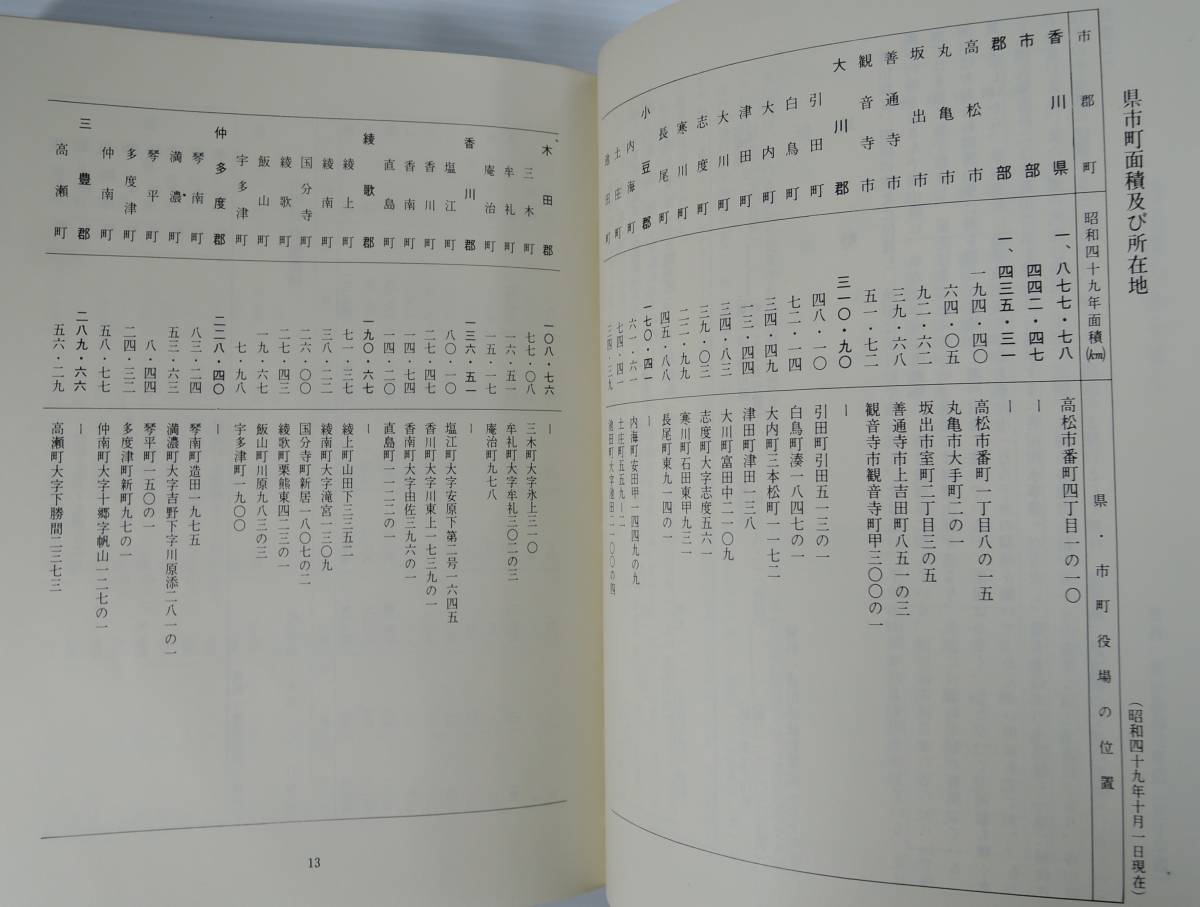 県市町面積及び所在地
(昭和四十九年十月一日現在)
市郡町 昭和四十九年面積(㎢) 県・市町役場の位置
香川県 一、八七七・七八 高松市番町四丁目一の一〇
市部 四四二・四七 ー
郡部 一、四三五・三一 ー
高松市 一九四・四〇 高松市番町一丁目八の一五
丸亀市 六四・〇五 丸亀市大手町二の一
坂出市 九二・六二 坂出市室町二丁目三の五
善通寺市 三九・六八 善通寺市上吉田町八五一の三
観音寺市 五一・七二 観音寺市観音寺町甲三〇〇の一
大川郡 三一〇・九〇 ー
引田町 四八・一〇 引田町引田五一三の一
白鳥町 七二・一四 白鳥町湊一八四七の一
大内町 三四・四九 大内町三本松町一一七二
津田町 一三・四四 津田町津田一三八
大川町 三四・八三 大川町富田中二一〇九
志度町 三九・〇三 志度町大字志度五六一
寒川町 二二・九九 寒川町石田東甲九三一
長尾町 四五・八八 長尾町東九一四の一
小豆郡 一七〇・四一 ー
内海町 六一・六一 内海町安田甲一四四九の九
土庄町 七四・四一 土庄町五五九ー二
池田町 三四・三九 池田町大字池田二一〇〇の四
木田郡 一〇八・七六 ー
三木町 七七・〇八 三木町大字氷上三一〇
牟礼町 一六・五一 牟礼町大字牟礼三〇二の三
庵治町 一五・一七 庵治町九七八
香川郡 一三六・五一 ー
塩江町 八〇・一〇 塩江町大字安原下第二号一六四五
香川町 二七・四七 香川町大字川東上一七三九の一
香南町 一四・七四 香南町大字由佐三九六の一
直島町 一四・二〇 直島町一一二二の一
綾歌郡 一九〇・六七 ー
綾上町 七一・三七 綾上町山田下三三五二
綾南町 三八・二二 綾南町大字滝宮一三〇九
国分寺町 二六・〇〇 国分寺町新居一八〇七の二
綾歌町 二七・四三 綾歌町栗熊東四二三の一
飯山町 一九・六七 飯山町川原九八三の三
宇多津町 七・九八 宇多津町一九〇〇
仲多度郡 二二八・四〇 ー
琴南町 八三・二四 琴南町造田一九七五
満濃町 五三・六三 満濃町大字吉野下字川原添二八一の一
琴平町 八・四四 琴平町一五〇の一
多度津町 二四・三二 多度津町新町九七の一
仲南町 五八・七七 仲南町大字十郷字帆山一二七の一
三豊郡 二八九・六六 ー
高瀬町 五六・二九 高瀬町大字下勝間二三七三
13